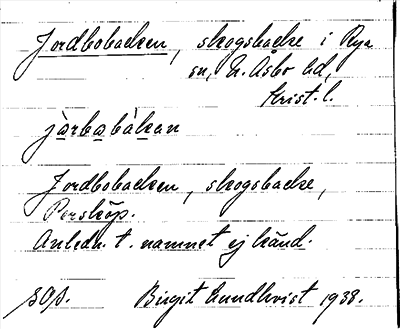 Jordbobacken, skogsbacke i Rya
sn, N. Åsbo hd,
Krist. l.
jàrbabàkan
Jordbobacken, skogsbacke,
Perstorp.
Anledn. t. namnet ej känd.
Birgit Lundkvist 1938.